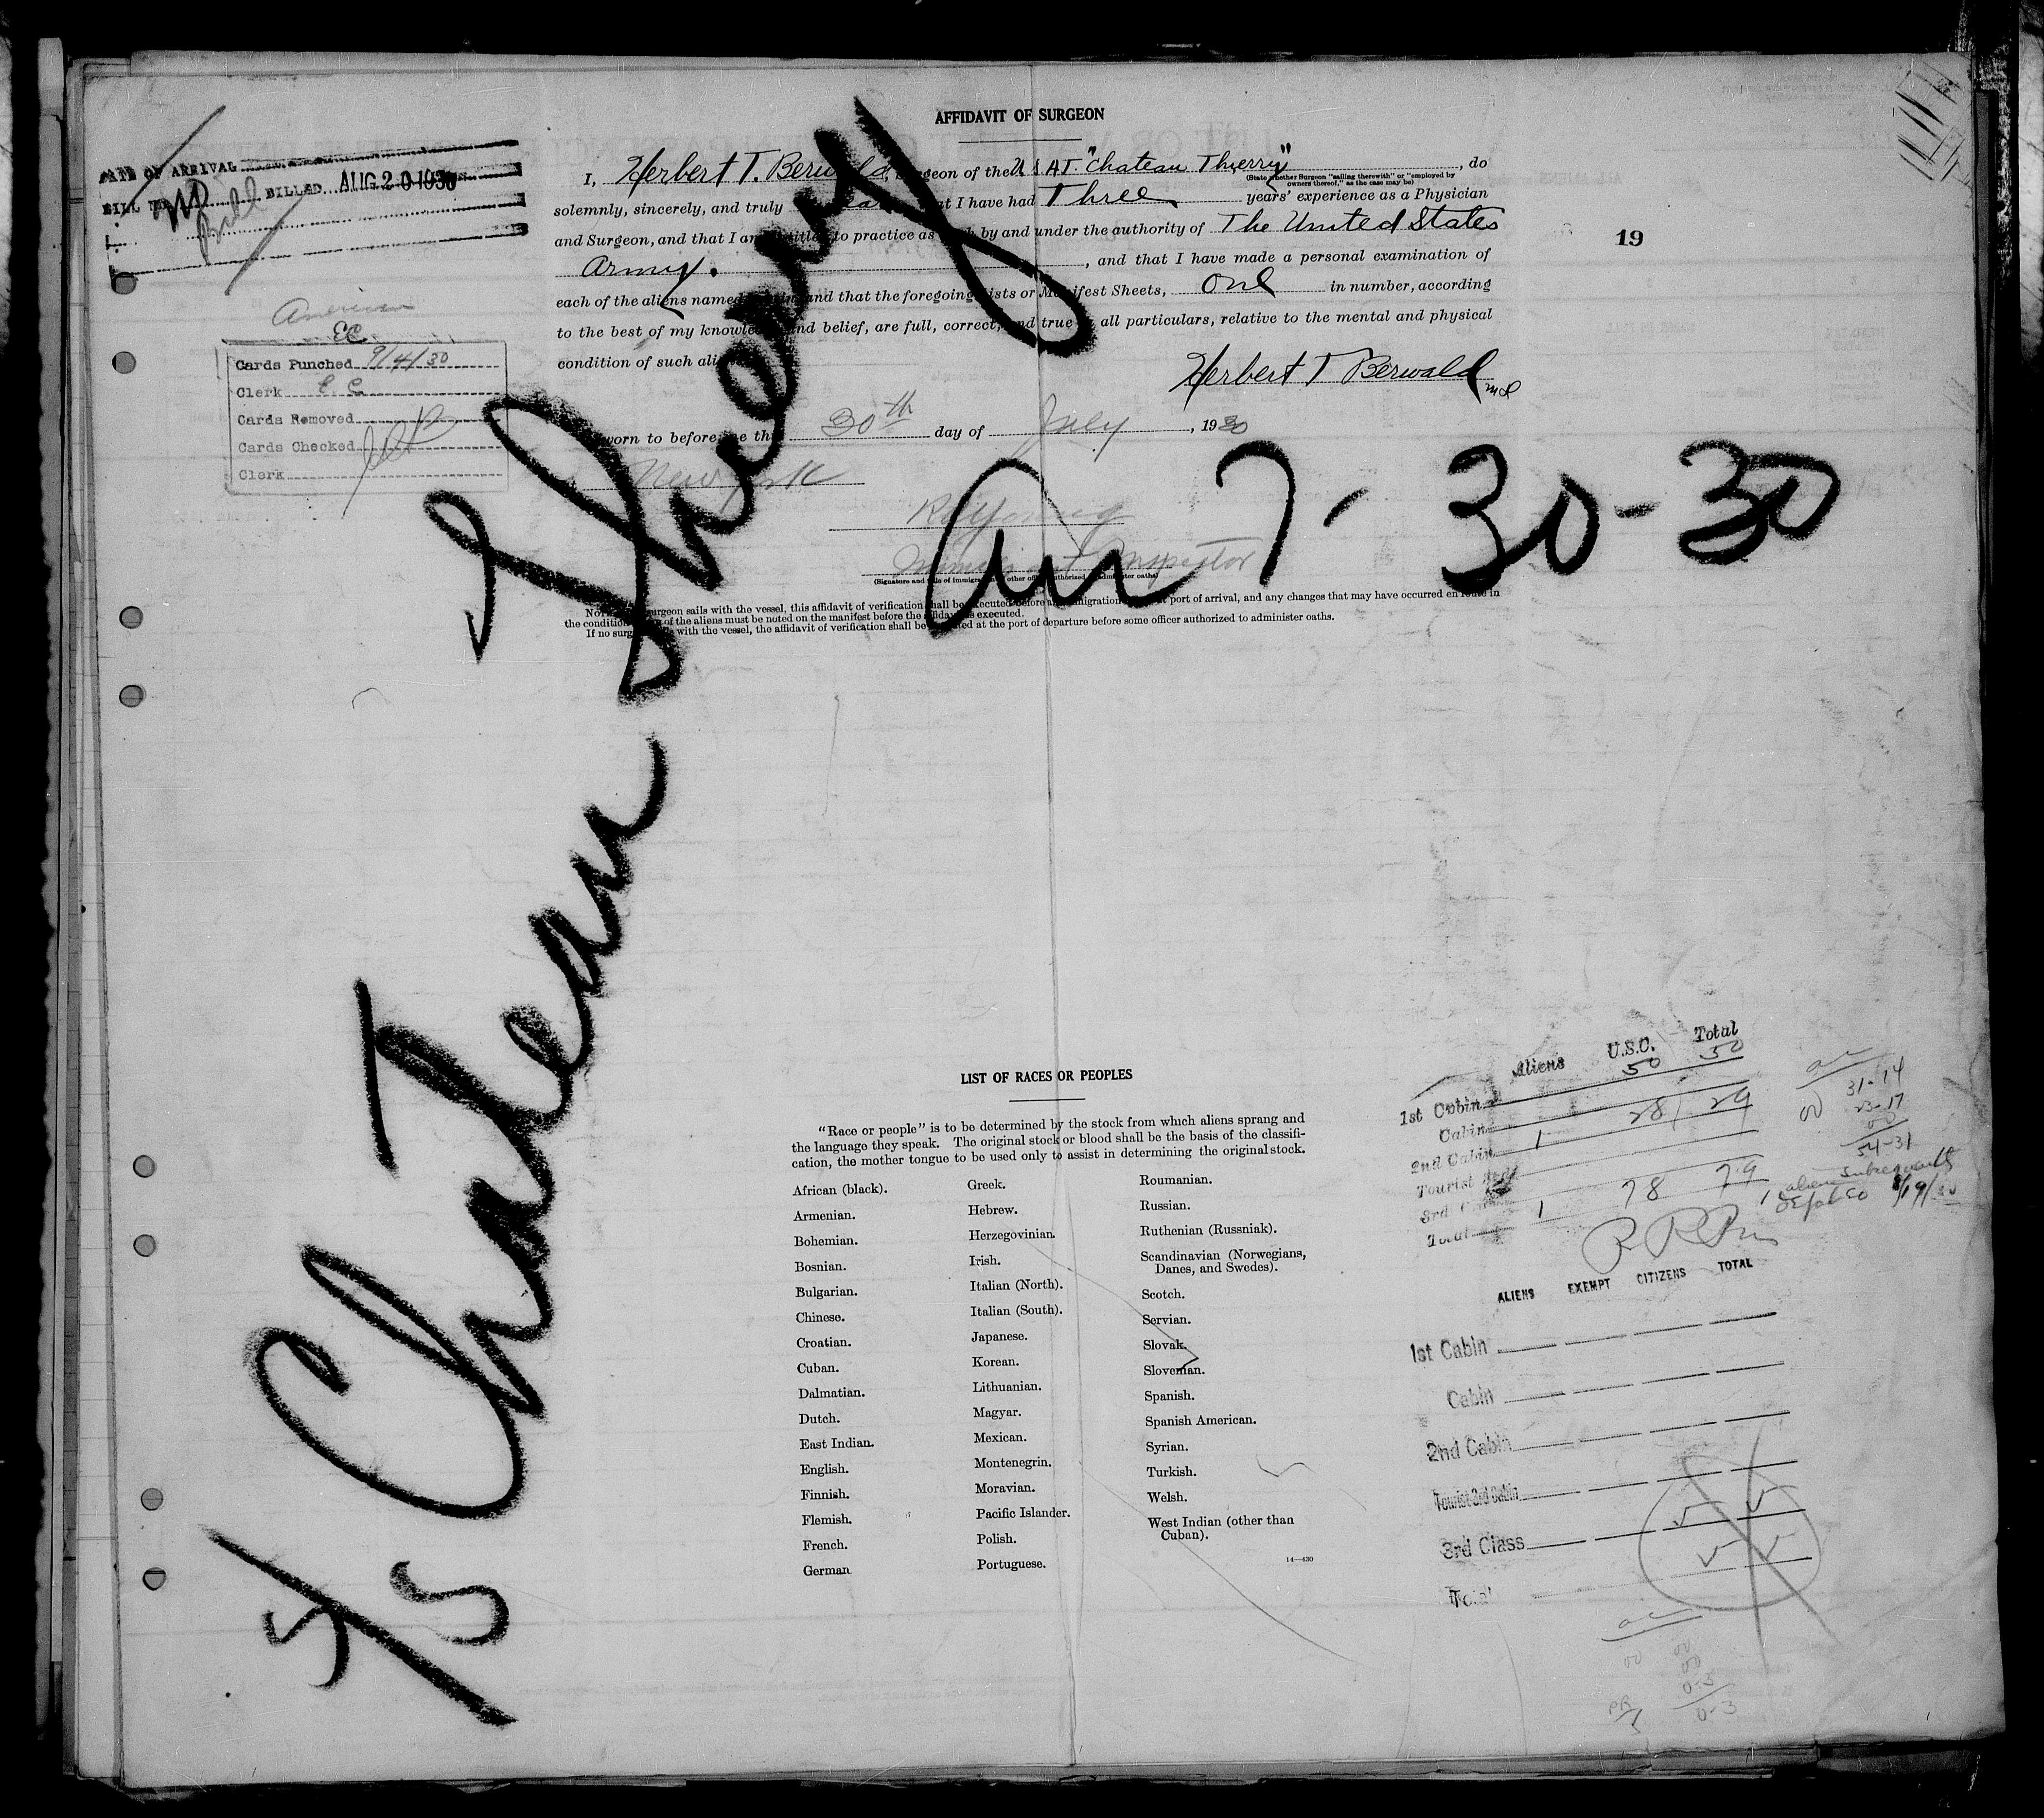 AFFIDAVIT OF SURGEON
I, Herbert T. Berwald, Surgeon of the U S A T "Chateau Thierry", do
(State whether Surgeon "sailing therewith" or "employed by
owners thereof," as the case may be)
solemnly, sincerely, and truly that I have had Three years' experience as a Physician
and Surgeon, and that I am entitled to practice as such by and under the authority of The United States
Army. , and that I have made a personal examination of
each of the aliens named and that the foregoing Lists or Manifest Sheets, One in number, according
to the best of my knowledge and belief, are full, correct, and true in all particulars, relative to the mental and physical
condition of such aliens.
Herbert T Berwald
Sworn to before me this 30th day of July, 1930
New York
Immigrant Inspector
(Signature and title of immigration or other officer authorized to administer oaths)
NOTE.—If surgeon sails with the vessel, this affidavit of verification shall be executed before an immigration officer at port of arrival, and any changes that may have occurred en route in
the condition of the aliens must be noted on the manifest before the affidavit is executed.
If no surgeon sails with the vessel, the affidavit of verification shall be executed at the port of departure before some officer authorized to administer oaths.
19
DATE OF ARRIVAL
BILL BILLED AUG 20 1930
Bill
American
EC
Cards Punched 9/4/30
Clerk E. C.
Cards Removed
Cards Checked
Clerk
S/S Chateau Thierry
Arr 7-30-30
LIST OF RACES OR PEOPLES
"Race or people" is to be determined by the stock from which aliens sprang and
the language they speak. The original stock or blood shall be the basis of the classifi-
cation, the mother tongue to be used only to assist in determining the original stock.
African (black).
Armenian.
Bohemian.
Bosnian.
Bulgarian.
Chinese.
Croatian.
Cuban.
Dalmatian.
Dutch.
East Indian.
English.
Finnish.
Flemish.
French.
German
Greek.
Hebrew.
Herzegovinian.
Irish.
Italian (North).
Italian (South).
Japanese.
Korean.
Lithuanian.
Magyar.
Mexican.
Montenegrin.
Moravian.
Pacific Islander.
Polish.
Portuguese.
Roumanian.
Russian.
Ruthenian (Russniak).
Scandinavian (Norwegians,
Danes, and Swedes).
Scotch.
Servian.
Slovak.
Slovenian.
Spanish.
Spanish American.
Syrian.
Turkish.
Welsh.
West Indian (other than
Cuban).
14—430
Aliens U.S.C. Total
1st Cabin 50 50
Cabin
2nd Cabin 1 28 29
Tourist 3rd
3rd
Total 1 78 79
31-14
23-17
54-31
1 alien subsequently
8/19/30
ALIENS EXEMPT CITIZENS TOTAL
1st Cabin
Cabin
2nd Cabin
Tourist 3rd Cabin
3rd Class
Total
0-3
0-3